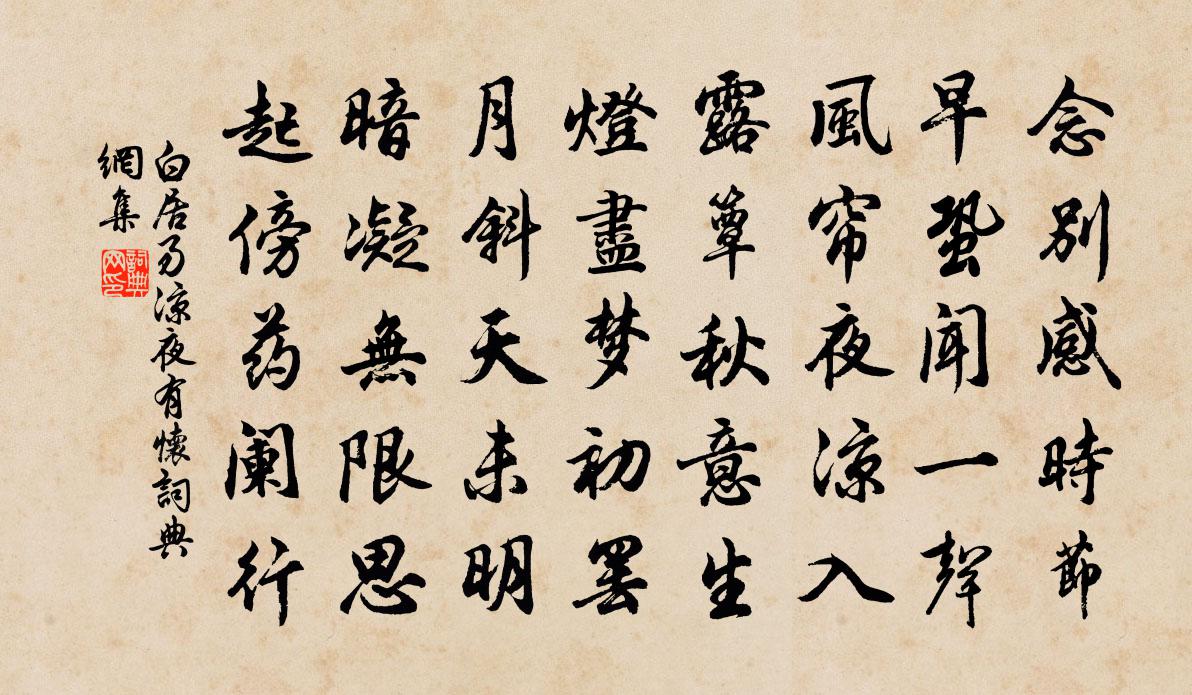 念別感時節
早蛩聞一聲
風帘夜涼入
露簟秋意生
燈盡梦初罢
月斜天未明
暗凝無限思
起傍药阑行
白居易涼夜有懷詞典
網集
詞典
网印